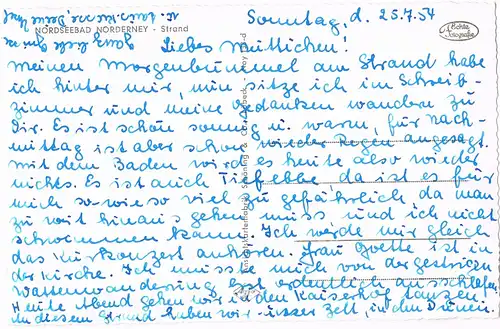 Sonntag, d. 25.7.54
NORDSEEBAD NORDERNEY - Strand
Echte Fotografie
Liebes Muttichen!
Meinen Morgenbummel am Strand habe
ich hinter mir, nun sitze ich im Schreib-
zimmer und meine Gedanken wandern zu
Dir. Es ist schön sonnig u. warm, für nach-
mittag ist aber schon wieder Regen angesagt.
mit dem Baden wird es heute also wieder
nichts. Es ist auch Tiefebbe, da ist es für
mich so-wie so viel zu gefährlich, da man
zu weit hinaus gehen muss und ich nicht
schwimmen kann. Ich werde mir gleich
das Kurkonzert anhören. Frau Goette ist in
der Kirche. Ich musste mich von der gestrigen
Wattenwanderung erst ordentlich ausschlafen.
Heute Abend gehen wir in den Kaiserhof tanzen.
An diesem Strand haben wir unser Zelt, in den Dünen.